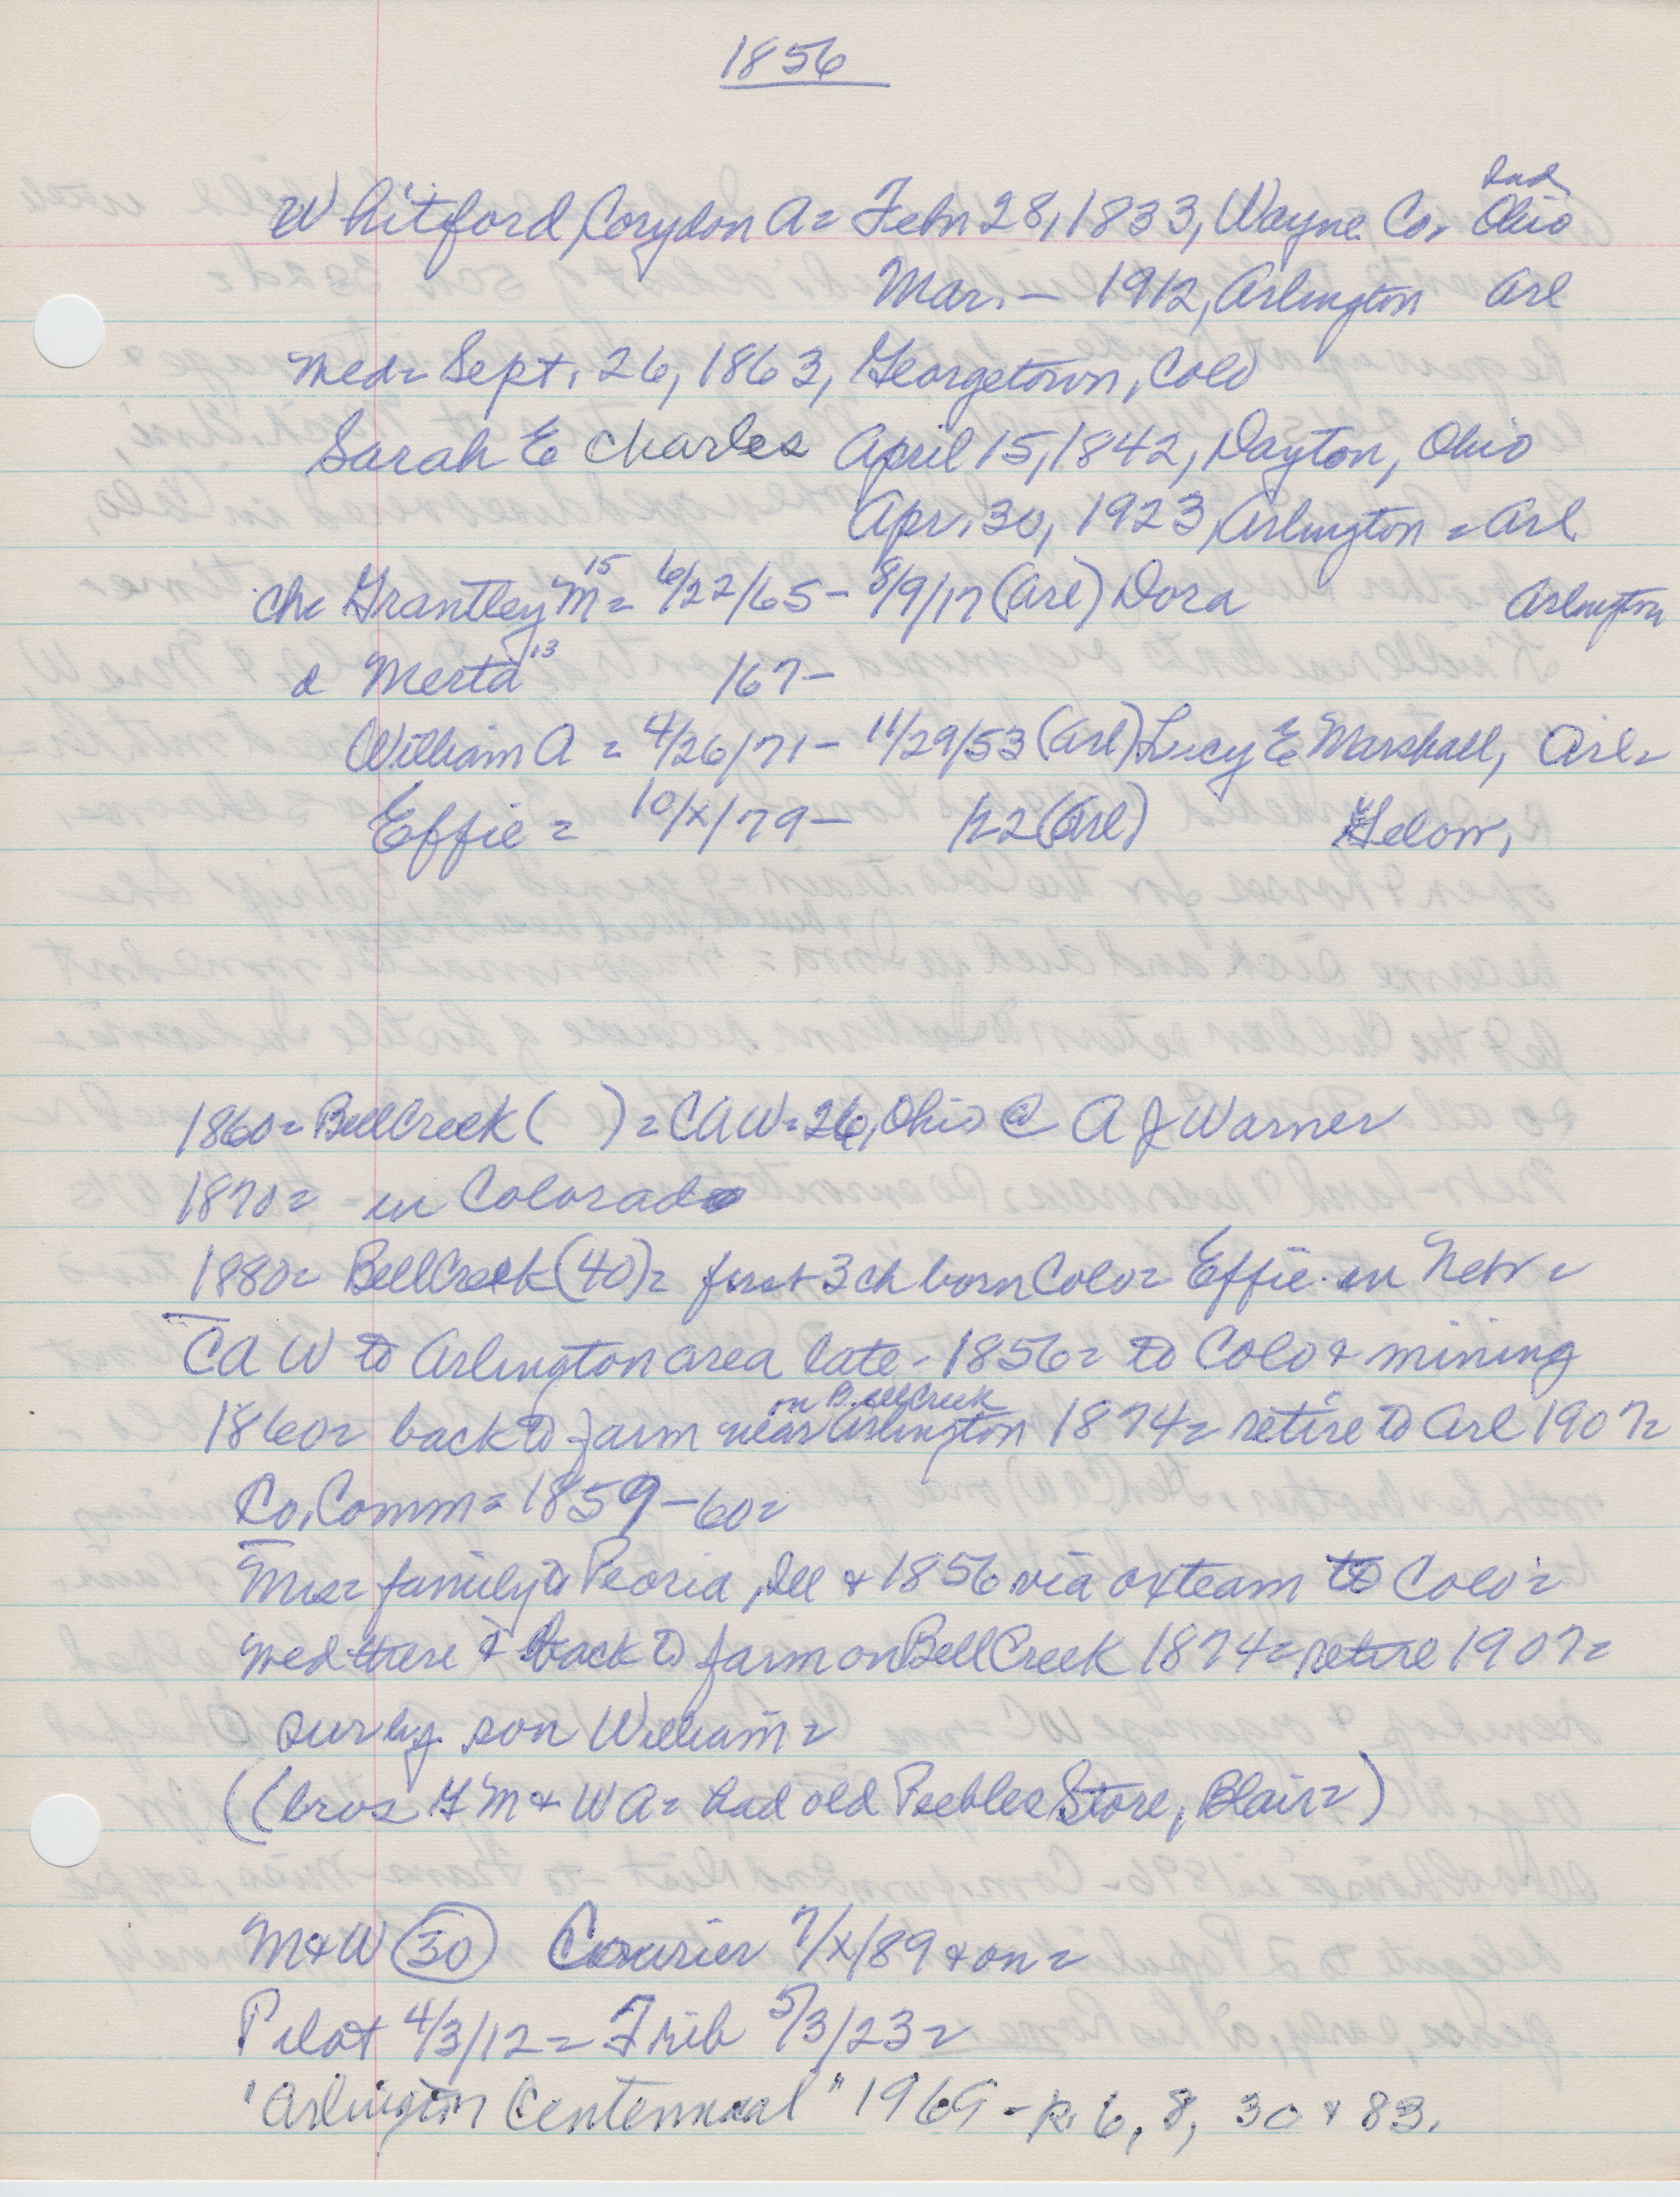 1856
Whitford, Corydon A = Febr 28, 1833, Wayne Co, Ohio
Mar. — 1912, Arlington Arl
med = Sept. 26, 1863, Georgetown, Colo
Sarah E Charles April 15, 1842, Dayton, Ohio
Apr. 30, 1923, Arlington = Arl
ch = Grantley M 15 = 6/22/65 – 8/9/17 (Arl) Dora Arlington
d Merta 13 /67 –
William A = 4/26/71 – 11/29/53 (Arl) Lucy E Marshall, Arl =
Effie = 10/x/79 – /22 (Arl) Gelow,
1860 = BellCreek ( ) = CAW = 26, Ohio @ A J Warner
1870 = in Colorado
1880 = BellCreek (40) = first 3 ch born Colo = Effie in Nebr =
CAW to Arlington area late - 1856 = to Colo & mining
on BellCreek
1860 = back to farm near Arlington 1874 = retire to Arl 1907 =
Co. Comm = 1859 – 60 =
Mrs = family to Peoria, Ill & 1856 via oxteam to Colo =
med there & back to farm on BellCreek 1874 = retire 1907 =
sur by son William =
((bros GM & WA = had old Peebles Store, Blair = )
M & W 30 Courier 7/x/89 & on =
Pilot 4/3/12 = Trib 5/3/23 =
"Arlington Centennial" 1969 - p. 6, 8, 30 & 83.